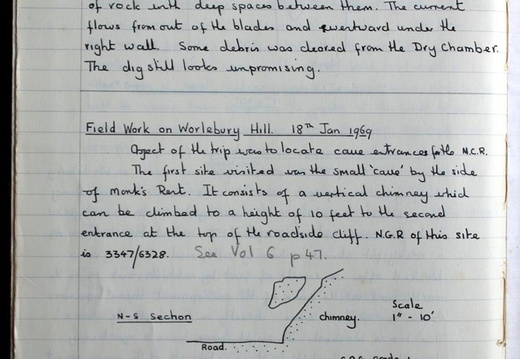 of rock with deep spaces between them. The current
flows from out of the blades and westward under the
right wall. Some debris was cleared from the Dry Chamber.
The dig still looks unpromising.
Field Work on Worlebury Hill. 18th Jan 1969
Object of the trip was to locate cave entrances for the N.C.R.
The first site visited was the small 'cave' by the side
of Monk's Rent. It consists of a vertical chimney which
can be climbed to a height of 10 feet to the second
entrance at the top of the roadside cliff. N.G.R of this site
is 3347/6328. See Vol 6 p 47.
N-S Section
Road.
chimney.
Scale
1" - 10'